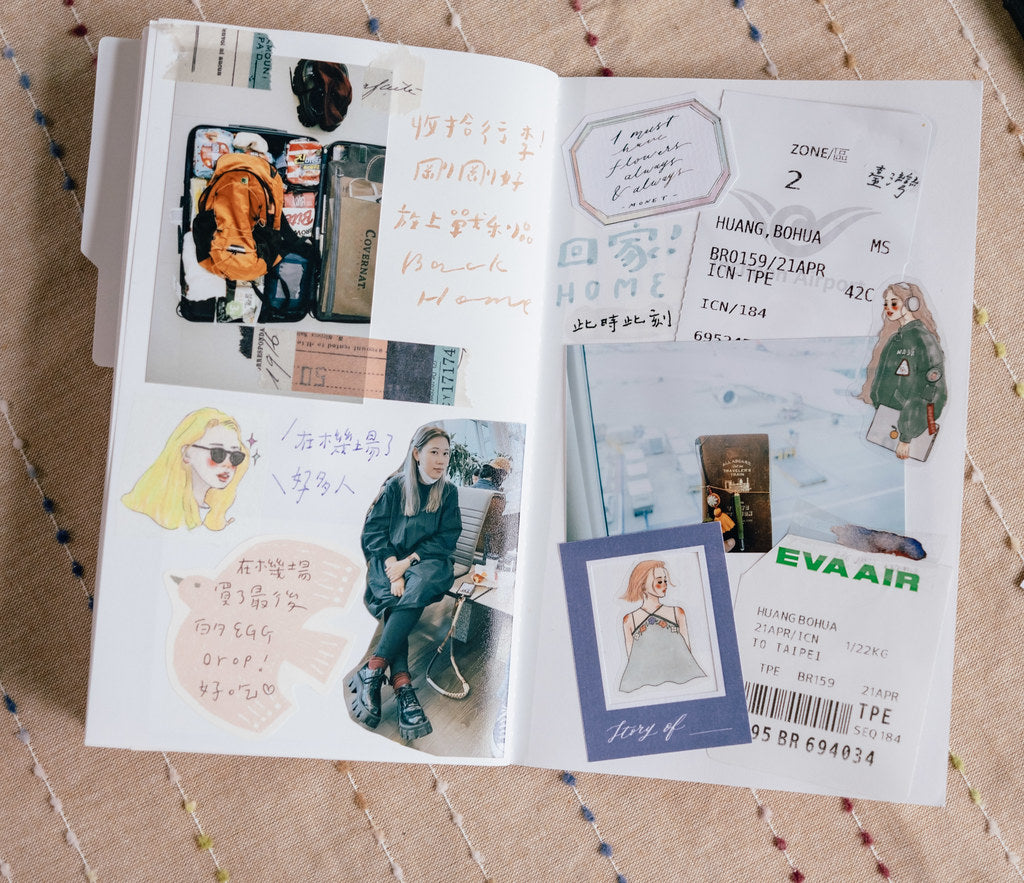 收拾行李!
剛剛好
放上戰樂品
Back
Home
COVERNAT
717174
50
\在機場了
\好多人
在機場
買了最後
的EGG
Drop!
好吃♡
I must
have
flowers
always
& always
- MONET -
回家!
HOME
此時此刻
ZONE/區
2
臺灣
HUANG,BOHUA MS
BR0159/21APR
ICN-TPE 42C
ICN/184
Story of
EVA AIR
HUANG BOHUA
21APR/ICN
TO TAIPEI 1/22KG
TPE BR159 21APR
TPE
SEQ 184
95 BR 694034